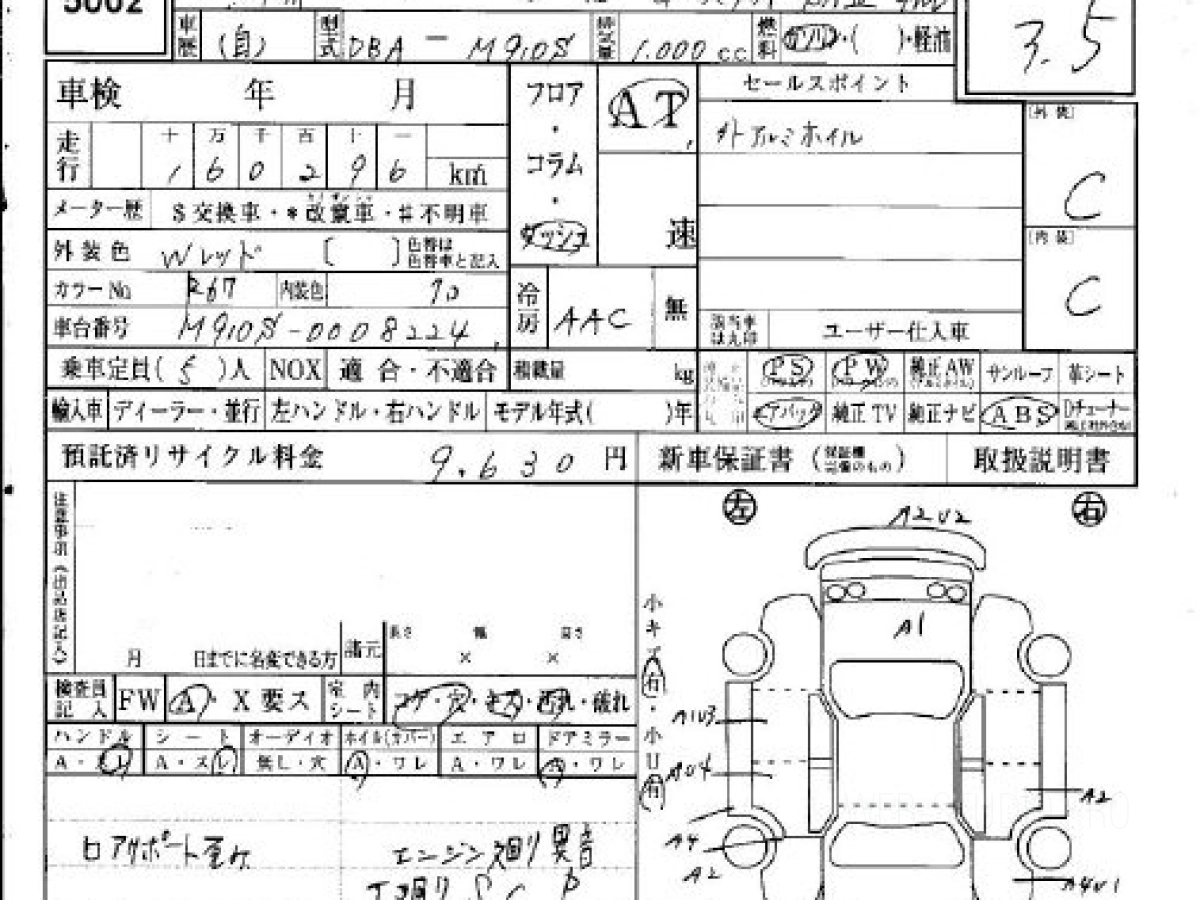 5002
車歴 (自) 型式 DBA - M910S 排気量 1.000 cc 燃料 ガソリン・( )・軽油
3.5
車検 年 月
フロア・コラム・ダッシュ
AT
速
セールスポイント
外アルミホイル
[外装]
C
[内装]
C
走行 十 万 千 百 十 一
1 6 0 2 9 6 km
メーター歴 $交換車・*改竄車・#不明車
外装色 Wレッド [ ] 色替は色替車と記入
カラーNo R67 内装色 70
冷房 AAC 無
車台番号 M910S-0008224
該当車は丸印 ユーザー仕入車
乗車定員(5)人 NOX 適合・不適合 積載量 kg
PS PW 純正AW サンルーフ 革シート
輸入車 ディーラー・並行 左ハンドル・右ハンドル モデル年式( )年
エアバック 純正TV 純正ナビ ABS Dチューナー
預託済リサイクル料金 9.630 円
新車保証書 (保証欄完備のもの) 取扱説明書
注意事項(出品店記入)
月 日までに名変できる方
諸元 長さ 幅 高さ
× ×
左 右
A2U2
A1
小キズ(有)・小U(有)
検査員記入 FW A・X要ス 室内シート コゲ・穴・キズ・汚れ・破れ
ハンドル シート オーディオ ホイル(カバー) エアロ ドアミラー
A・スレ A・スレ 無し・穴 A・ワレ A・ワレ A・ワレ
A1U3
AU4
A2
A4
A2
A4U1
ロアサポート歪ケ
エンジン廻り異音
下廻りSCP